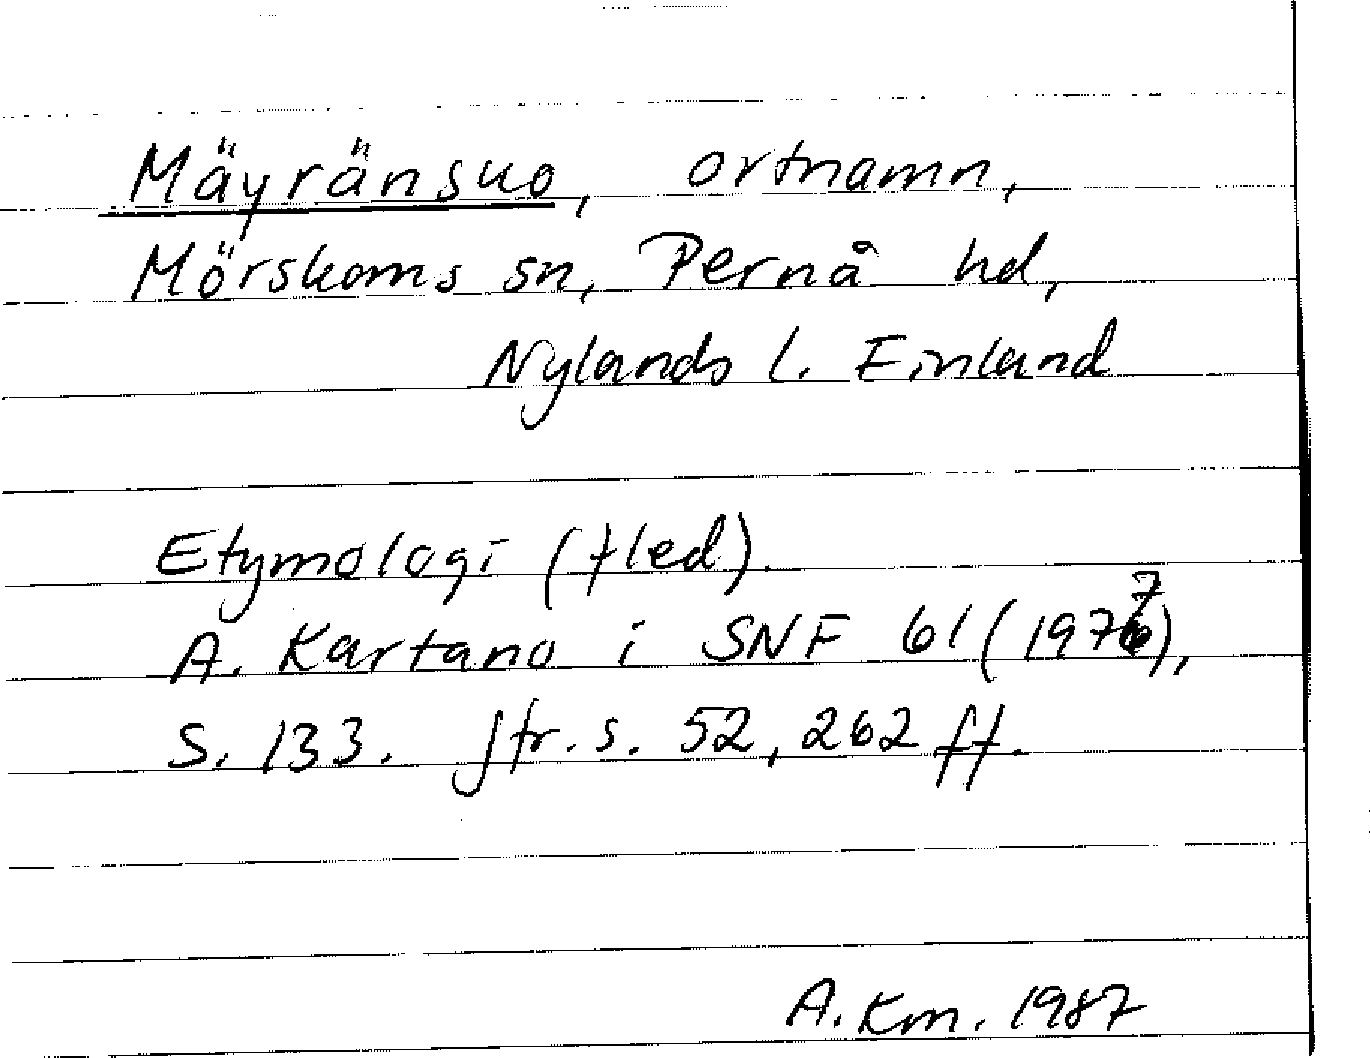 Mäyränsuo, ortnamn,
Mörskoms sn, Pernå hd,
Nylands l. Finland
Etymologi (fled).
A. Kartano i SNF 61 (1977),
S. 133. Jfr. s. 52, 262 ff.
A. Km. 1987